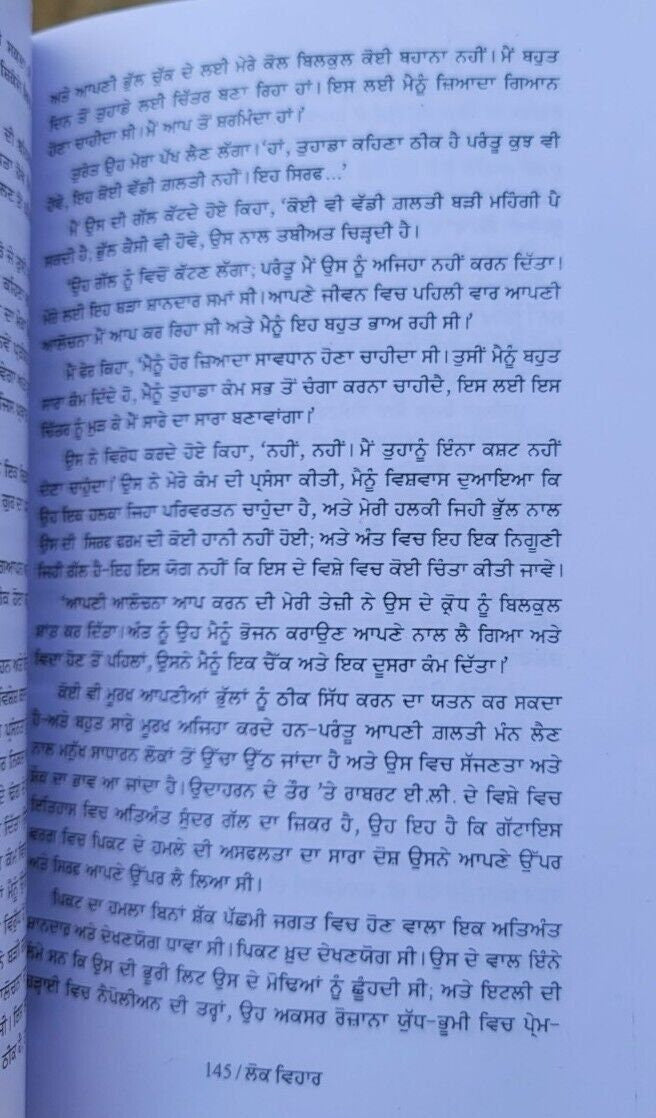 ਅਤੇ ਆਪਣੀ ਭੁੱਲ ਚੁੱਕ ਦੇ ਲਈ ਮੇਰੇ ਕੋਲ ਬਿਲਕੁਲ ਕੋਈ ਬਹਾਨਾ ਨਹੀਂ। ਮੈਂ ਬਹੁਤ
ਦਿਨ ਤੋਂ ਤੁਹਾਡੇ ਲਈ ਚਿੱਤਰ ਬਣਾ ਰਿਹਾ ਹਾਂ। ਇਸ ਲਈ ਮੈਨੂੰ ਜ਼ਿਆਦਾ ਗਿਆਨ
ਹੋਣਾ ਚਾਹੀਦਾ ਸੀ। ਮੈਂ ਆਪ ਤੋਂ ਸ਼ਰਮਿੰਦਾ ਹਾਂ।'
ਤੁਰੰਤ ਉਹ ਮੇਰਾ ਪੱਖ ਲੈਣ ਲੱਗਾ। 'ਹਾਂ, ਤੁਹਾਡਾ ਕਹਿਣਾ ਠੀਕ ਹੈ ਪਰੰਤੂ ਕੁਝ ਵੀ
ਹੋਵੇ, ਇਹ ਕੋਈ ਵੱਡੀ ਗ਼ਲਤੀ ਨਹੀਂ। ਇਹ ਸਿਰਫ...'
ਮੈਂ ਉਸ ਦੀ ਗੱਲ ਕੱਟਦੇ ਹੋਏ ਕਿਹਾ, 'ਕੋਈ ਵੀ ਵੱਡੀ ਗ਼ਲਤੀ ਬੜੀ ਮਹਿੰਗੀ ਪੈ
ਸਕਦੀ ਹੈ, ਭੁੱਲ ਕੈਸੀ ਵੀ ਹੋਵੇ, ਉਸ ਨਾਲ ਤਬੀਅਤ ਚਿੜ੍ਹਦੀ ਹੈ।
'ਉਹ ਗੱਲ ਨੂੰ ਵਿਚੋਂ ਕੱਟਣ ਲੱਗਾ; ਪਰੰਤੂ ਮੈਂ ਉਸ ਨੂੰ ਅਜਿਹਾ ਨਹੀਂ ਕਰਨ ਦਿੱਤਾ।
ਮੇਰੇ ਲਈ ਇਹ ਬੜਾ ਸ਼ਾਨਦਾਰ ਸਮਾਂ ਸੀ। ਆਪਣੇ ਜੀਵਨ ਵਿਚ ਪਹਿਲੀ ਵਾਰ ਆਪਣੀ
ਆਲੋਚਨਾ ਮੈਂ ਆਪ ਕਰ ਰਿਹਾ ਸੀ ਅਤੇ ਮੈਨੂੰ ਇਹ ਬਹੁਤ ਭਾਅ ਰਹੀ ਸੀ।'
ਮੈਂ ਫੇਰ ਕਿਹਾ, 'ਮੈਨੂੰ ਹੋਰ ਜ਼ਿਆਦਾ ਸਾਵਧਾਨ ਹੋਣਾ ਚਾਹੀਦਾ ਸੀ। ਤੁਸੀਂ ਮੈਨੂੰ ਬਹੁਤ
ਸਾਰਾ ਕੰਮ ਦਿੰਦੇ ਹੋ, ਮੈਨੂੰ ਤੁਹਾਡਾ ਕੰਮ ਸਭ ਤੋਂ ਚੰਗਾ ਕਰਨਾ ਚਾਹੀਦੈ, ਇਸ ਲਈ ਇਸ
ਚਿੱਤਰ ਨੂੰ ਮੁੜ ਕੇ ਮੈਂ ਸਾਰੇ ਦਾ ਸਾਰਾ ਬਣਾਵਾਂਗਾ।'
ਉਸ ਨੇ ਵਿਰੋਧ ਕਰਦੇ ਹੋਏ ਕਿਹਾ, 'ਨਹੀਂ, ਨਹੀਂ। ਮੈਂ ਤੁਹਾਨੂੰ ਇੰਨਾ ਕਸ਼ਟ ਨਹੀਂ
ਦੇਣਾ ਚਾਹੁੰਦਾ।' ਉਸ ਨੇ ਮੇਰੇ ਕੰਮ ਦੀ ਪ੍ਰਸੰਸਾ ਕੀਤੀ, ਮੈਨੂੰ ਵਿਸ਼ਵਾਸ ਦੁਆਇਆ ਕਿ
ਉਹ ਇਕ ਹਲਕਾ ਜਿਹਾ ਪਰਿਵਰਤਨ ਚਾਹੁੰਦਾ ਹੈ, ਅਤੇ ਮੇਰੀ ਹਲਕੀ ਜਿਹੀ ਭੁੱਲ ਨਾਲ
ਉਸ ਦੀ ਸਿਰਫ ਫਰਮ ਦੀ ਕੋਈ ਹਾਨੀ ਨਹੀਂ ਹੋਈ; ਅਤੇ ਅੰਤ ਵਿਚ ਇਹ ਇਕ ਨਿਗੂਣੀ
ਜਿਹੀ ਗੱਲ ਹੈ-ਇਹ ਇਸ ਯੋਗ ਨਹੀਂ ਕਿ ਇਸ ਦੇ ਵਿਸ਼ੇ ਵਿਚ ਕੋਈ ਚਿੰਤਾ ਕੀਤੀ ਜਾਵੇ।
'ਆਪਣੀ ਆਲੋਚਨਾ ਆਪ ਕਰਨ ਦੀ ਮੇਰੀ ਤੇਜ਼ੀ ਨੇ ਉਸ ਦੇ ਕ੍ਰੋਧ ਨੂੰ ਬਿਲਕੁਲ
ਸ਼ਾਂਤ ਕਰ ਦਿੱਤਾ। ਅੰਤ ਨੂੰ ਉਹ ਮੈਨੂੰ ਭੋਜਨ ਕਰਾਉਣ ਆਪਣੇ ਨਾਲ ਲੈ ਗਿਆ ਅਤੇ
ਵਿਦਾ ਹੋਣ ਤੋਂ ਪਹਿਲਾਂ, ਉਸਨੇ ਮੈਨੂੰ ਇਕ ਚੈੱਕ ਅਤੇ ਇਕ ਦੂਸਰਾ ਕੰਮ ਦਿੱਤਾ।'
ਕੋਈ ਵੀ ਮੂਰਖ ਆਪਣੀਆਂ ਭੁੱਲਾਂ ਨੂੰ ਠੀਕ ਸਿੱਧ ਕਰਨ ਦਾ ਯਤਨ ਕਰ ਸਕਦਾ
ਹੈ-ਅਤੇ ਬਹੁਤ ਸਾਰੇ ਮੂਰਖ ਅਜਿਹਾ ਕਰਦੇ ਹਨ-ਪਰੰਤੂ ਆਪਣੀ ਗ਼ਲਤੀ ਮੰਨ ਲੈਣ
ਨਾਲ ਮਨੁੱਖ ਸਾਧਾਰਨ ਲੋਕਾਂ ਤੋਂ ਉੱਚਾ ਉੱਠ ਜਾਂਦਾ ਹੈ ਅਤੇ ਉਸ ਵਿਚ ਸੱਜਣਤਾ ਅਤੇ
ਦਾ ਭਾਵ ਆ ਜਾਂਦਾ ਹੈ। ਉਦਾਹਰਨ ਦੇ ਤੌਰ 'ਤੇ ਰਾਬਰਟ ਈ.ਲੀ. ਦੇ ਵਿਸ਼ੇ ਵਿਚ
ਇਤਿਹਾਸ ਵਿਚ ਅਤਿਅੰਤ ਸੁੰਦਰ ਗੱਲ ਦਾ ਜ਼ਿਕਰ ਹੈ, ਉਹ ਇਹ ਹੈ ਕਿ ਗੱਟਾਇਸ
ਵਰਗ ਵਿਚ ਪਿਕਟ ਦੇ ਹਮਲੇ ਦੀ ਅਸਫਲਤਾ ਦਾ ਸਾਰਾ ਦੋਸ਼ ਉਸਨੇ ਆਪਣੇ ਉੱਪਰ
ਅਤੇ ਸਿਰਫ ਆਪਣੇ ਉੱਪਰ ਲੈ ਲਿਆ ਸੀ।
ਪਿਕਟ ਦਾ ਹਮਲਾ ਬਿਨਾਂ ਸ਼ੱਕ ਪੱਛਮੀ ਜਗਤ ਵਿਚ ਹੋਣ ਵਾਲਾ ਇਕ ਅਤਿਅੰਤ
ਸ਼ਾਨਦਾਰ ਅਤੇ ਦੇਖਣਯੋਗ ਧਾਵਾ ਸੀ। ਪਿਕਟ ਖ਼ੁਦ ਦੇਖਣਯੋਗ ਸੀ। ਉਸ ਦੇ ਵਾਲ ਇੰਨੇ
ਲੰਮੇ ਸਨ ਕਿ ਉਸ ਦੀ ਭੂਰੀ ਲਿਟ ਉਸ ਦੇ ਮੋਢਿਆਂ ਨੂੰ ਛੂੰਹਦੀ ਸੀ; ਅਤੇ ਇਟਲੀ ਦੀ
ਚੜ੍ਹਾਈ ਵਿਚ ਨੈਪੋਲੀਅਨ ਦੀ ਤਰ੍ਹਾਂ, ਉਹ ਅਕਸਰ ਰੋਜ਼ਾਨਾ ਯੁੱਧ-ਭੂਮੀ ਵਿਚ ਪ੍ਰੇਮ-
145/ਲੋਕ ਵਿਹਾਰ